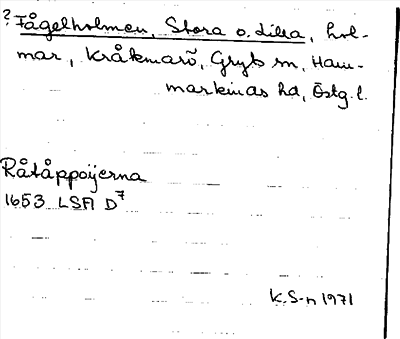 ? Fågelholmen, Stora o. Lilla, hol-
mar, Kråkmarö, Gryts sn, Ham-
markinds hd, Östg. l.
Råtåppöijerna
1653 LSA D7
K. S-n 1971